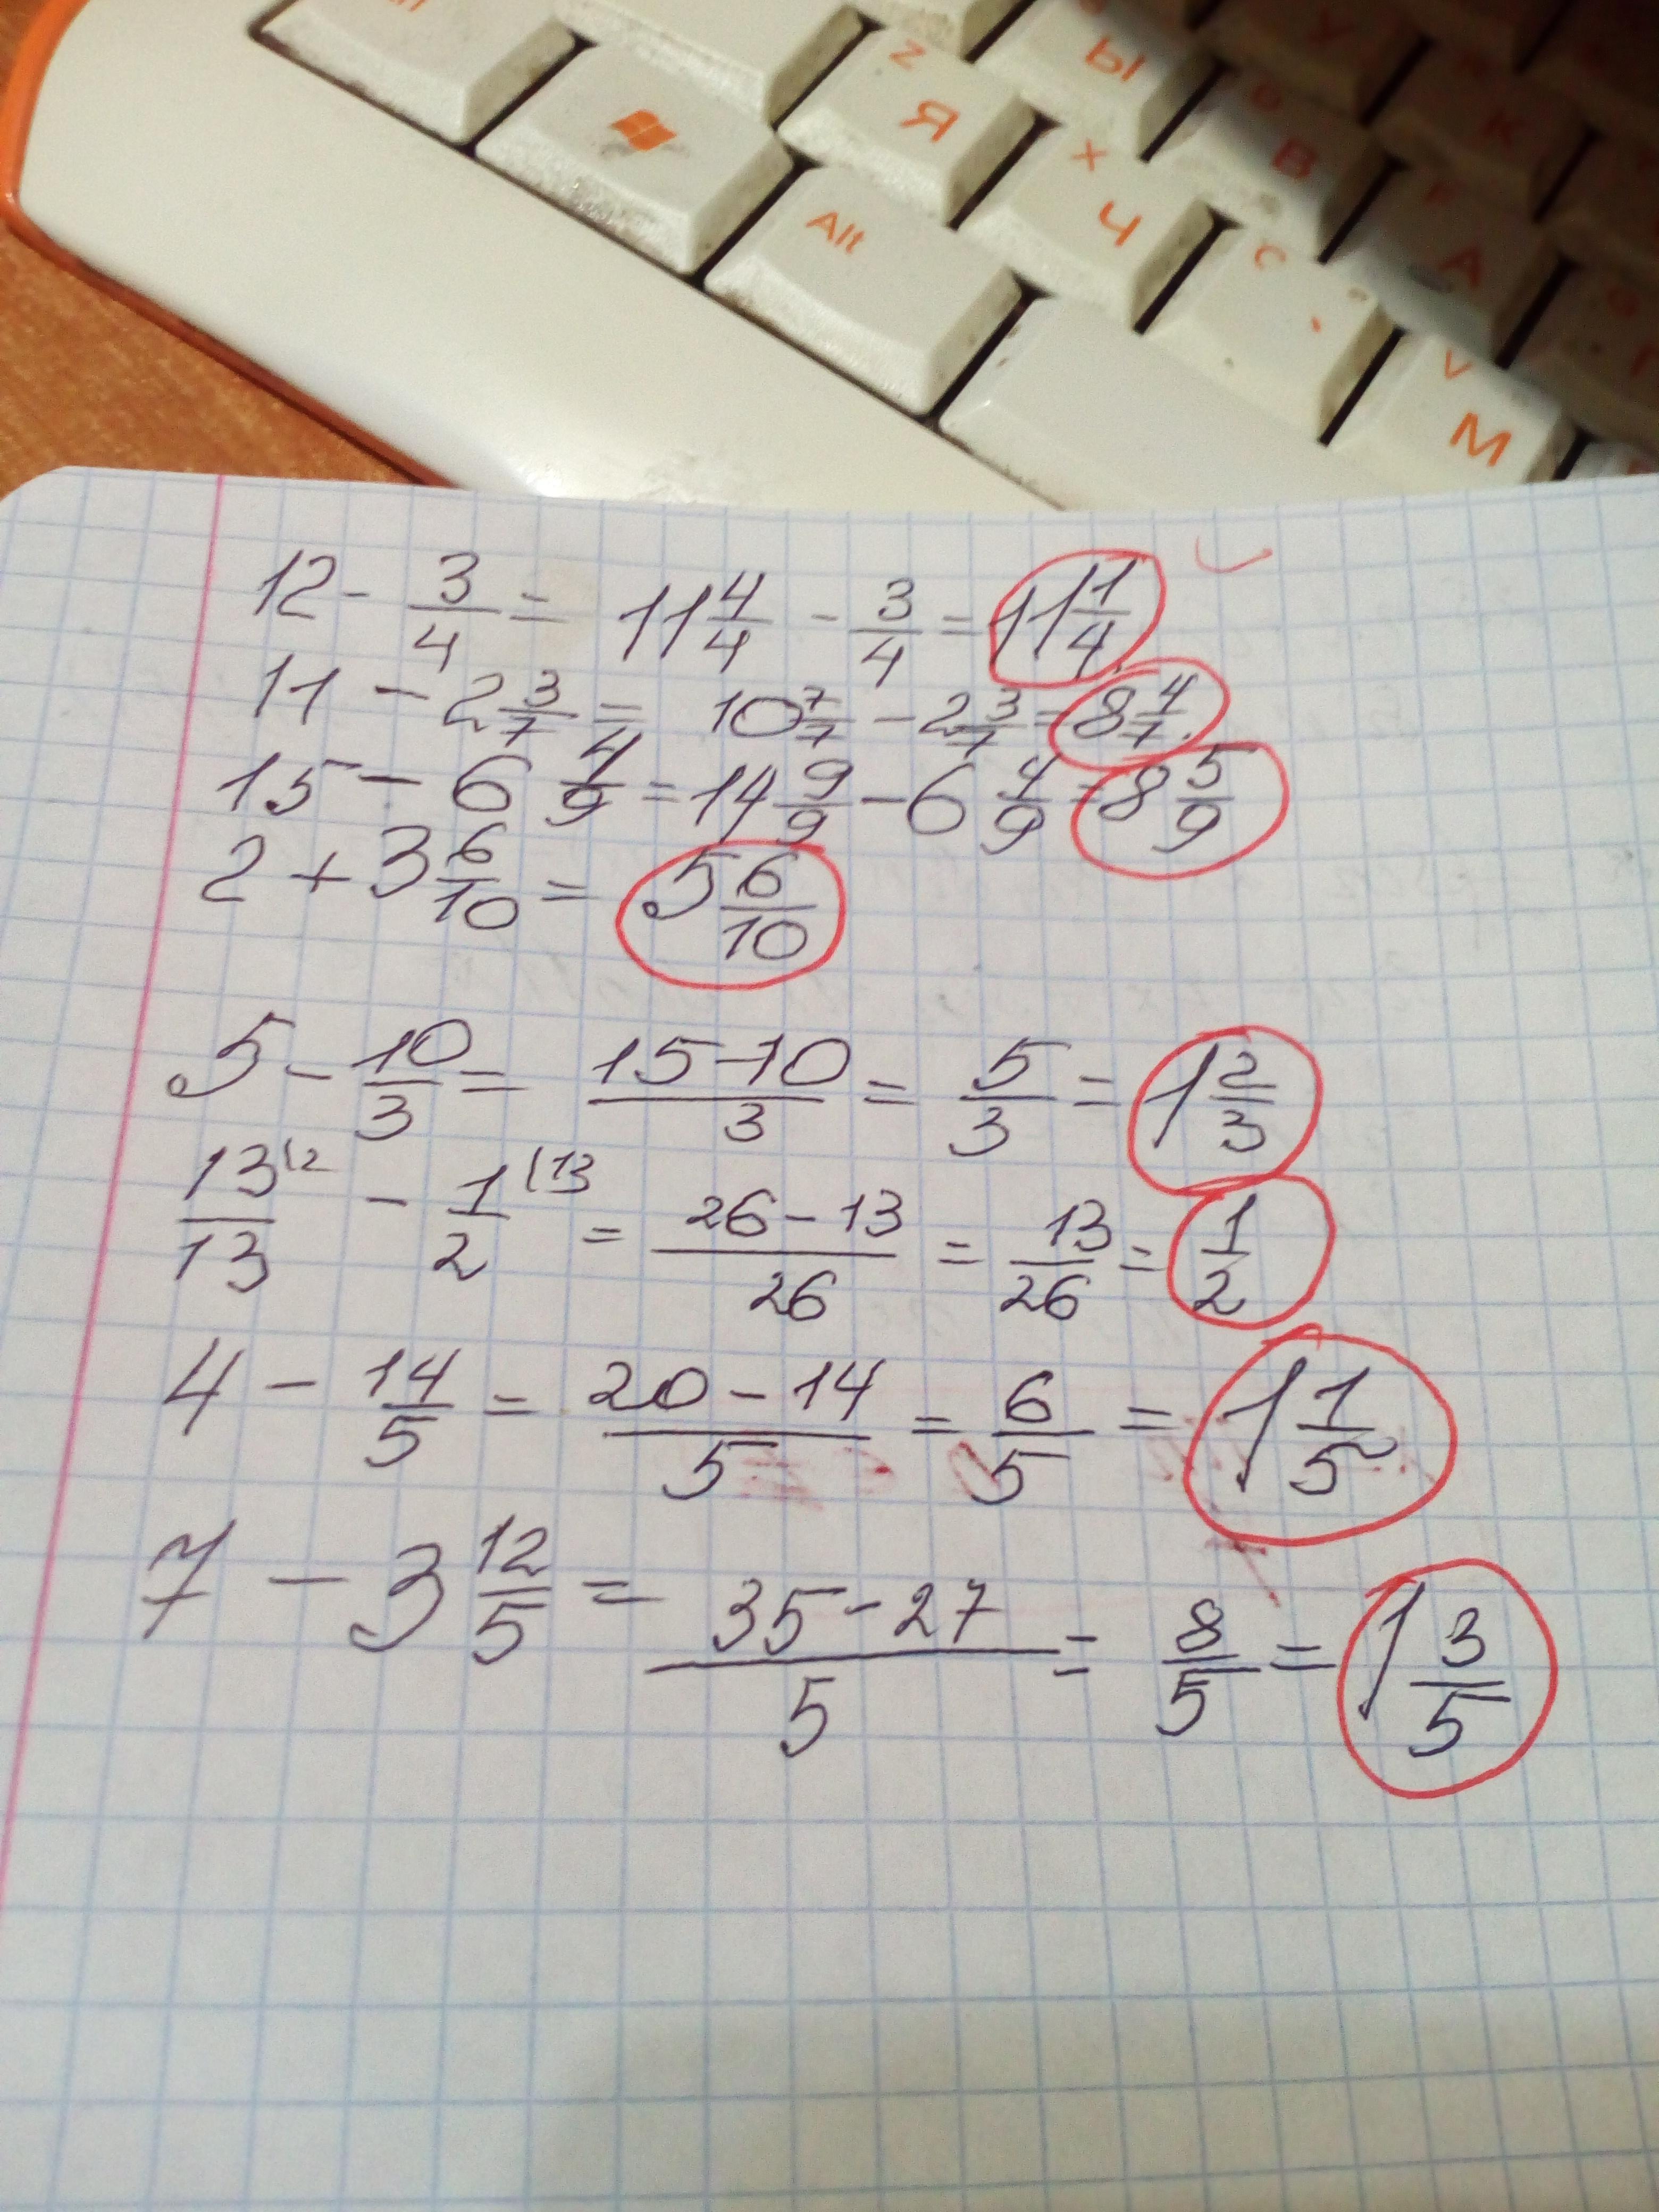 Alt
Z Я
Ы
X Ч
В
C
А
К
V М
12 - 3/4 = 11 4/4 - 3/4 = 11 1/4
11 - 2 3/7 = 10 7/7 - 2 3/7 = 8 4/7.
15 - 6 4/9 = 14 9/9 - 6 4/9 = 8 5/9
2 + 3 6/10 = 5 6/10
5 - 10/3 = 15-10/3 = 5/3 = 1 2/3
13\2/13 - 1\13/2 = 26-13/26 = 13/26 = 1/2
4 - 14/5 = 20-14/5 = 6/5 = 1 1/5
7 - 3 12/5 = 35-27/5 = 8/5 = 1 3/5